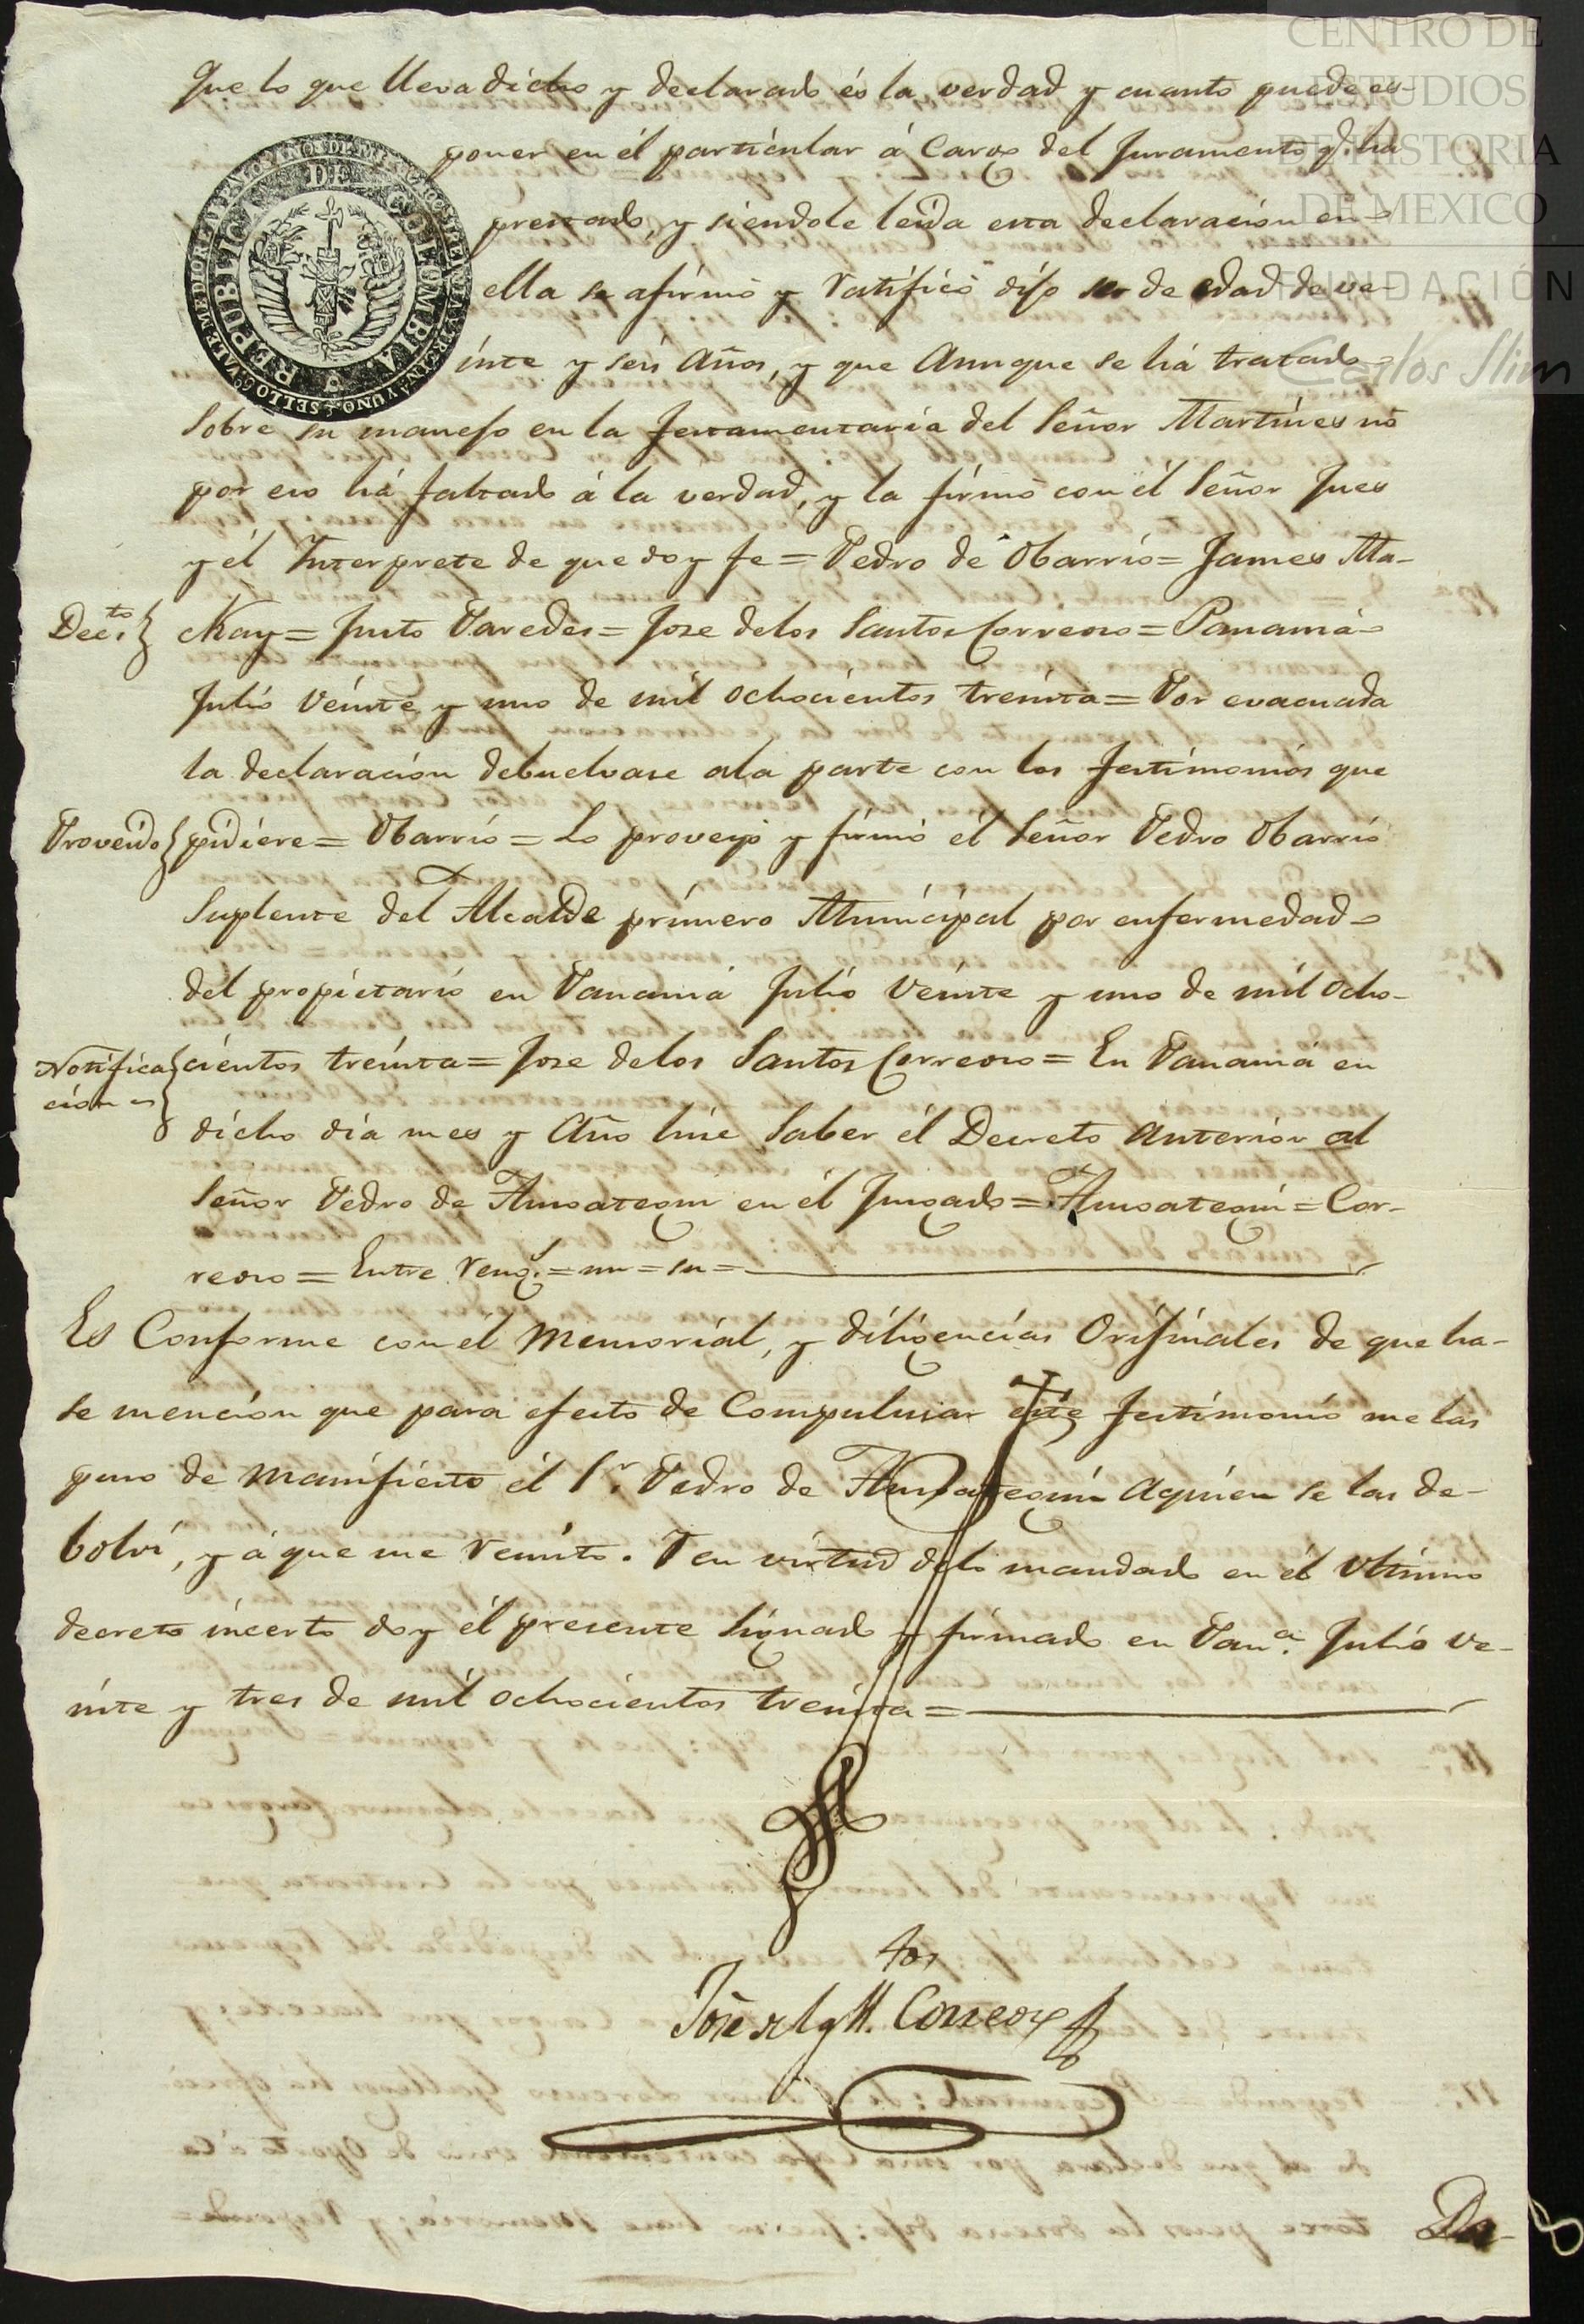 CENTRO DE
ESTUDIOS
DE HISTORIA
DE MEXICO
FUNDACIÓN
Carlos Slim
Que lo que lleva dicho y declarado és la verdad y cuanto puede es-
poner en él particular á Cargo del Juramento q.e ha
prestado, y siendole leida esta declaracion en
ella se afirmó y ratificó dijo ser de edad de ve-
inte y seis Años, y que Aunque se há tratado
Sobre su manejo en la Testamentaria del Señor Martines no
por eso há faltado á la verdad, y la firmó con él Señor Jues
y él Interprete de que doy fe = Pedro de Obarrio = James Ma-
Dec.to
cKay = Justo Paredes = Jose delos Santos Correoso = Panamá
Julio veinte y uno de mil ochocientos treinta = Por evacuada
la declaracion debuelvase ala parte con los testimonios que
Proveido
pidiere = Obarrio = Lo proveyó y firmó él Señor Pedro Obarrio
Suplente del Alcalde primero Municipal por enfermedad
del propietario en Panamá Julio Veinte y uno de mil ocho-
Notifica
cion
cientos treinta = Jose delos Santos Correoso = En Panamá en
dicho dia mes y Año hise Saber él Decreto anterior al
Señor Pedro de Ansoategui en él Jusgado = Ansoategui = Cor-
reoso = Entre Reng.s = un = su =
Es Conforme con él Memorial, y diligencias Orijinales de que ha-
se mencion que para efecto de Compulsar éste testimonio me las
puso de Manifiesto él S.r Pedro de Ansoategui Aquien se las de-
bolvi, y á que me remito. Y en virtud delo mandado en él Ultimo
decreto incerto doy él presente Signado y firmado en Pan.a Julio ve-
inte y tres de mil ochocientos treinta =
Correoso
Da-
REPUBLICA DE COLOMBIA
8